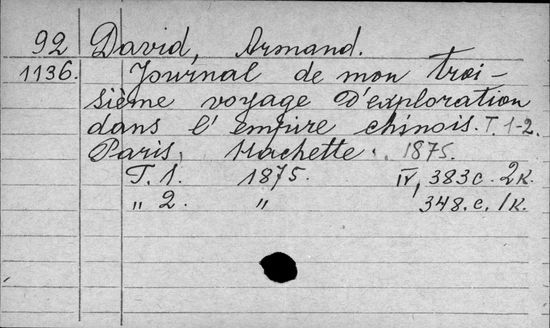 92 David, Armand.
1136. Journal de mon troi-
sième voyage d'exploration
dans l'empire chinois. T. 1-2.
Paris, Hachette. 1875.
T. 1. 1875. IV, 383 c. 2 к.
„ 2. „ 348. c. 1 к.